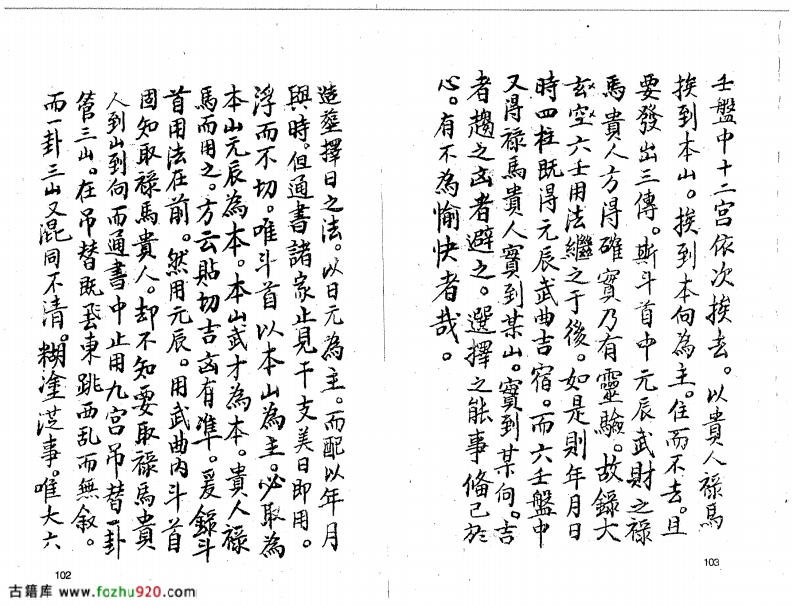 造葬擇日之法。以日元為主。而配以年月
與時。但通書諸家止見干支美日即用。
浮而不切。唯斗首以本山為主。必取為
本山元辰為本。本山武才為本。貴人祿
馬而用之。方云貼切吉凶有準。爰錄斗
首用法在前。然用元辰。用武曲內斗首
固知取祿馬貴人。却不知要取祿馬貴
人到山到向而通書中止用九宮吊替一卦
管三山。在吊替既飛東跳西乱而無叙。
而一卦三山又混同不清。糊塗茫事。唯大六
102
壬盤中十二宮依次挨去。以貴人祿馬
挨到本山。挨到本向為主。住而不去。且
要發出三傳。斯斗首中元辰武財之祿
馬貴人方得確實乃有靈驗。故錄大
玄空六壬用法繼之于後。如是則年月日
時四柱既得元辰武曲吉宿。而六壬盤中
又得祿馬貴人實到某山。實到某向。吉
者趨之凶者避之。選擇之能事俻已於
心。有不為愉快者哉。
103
古籍库 www.fozhu920.com